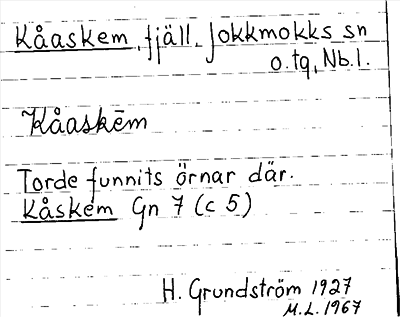 Kåaskem, fjäll, Jokkmokks sn
o. tg, Nb. l.
Kåaskēm
Torde funnits örnar där.
Kåskem Gn 7 (c 5)
H. Grundström 1927
M.L. 1967